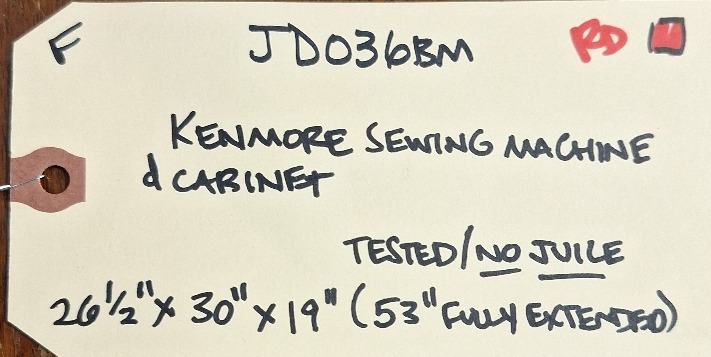 F JD036BM RD
KENMORE SEWING MACHINE
& CABINET
TESTED/NO JUICE
26 1/2" x 30" x 19" (53" FULLY EXTENDED)